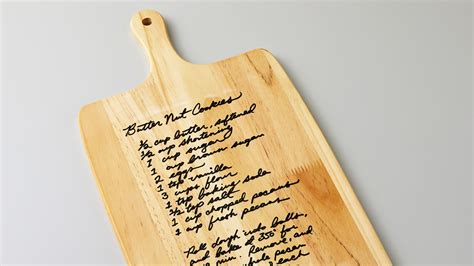 Butter Nut Cookies
½ cup butter, softened
½ cup shortening
1 cup sugar
1 cup brown sugar
2 eggs
1 tsp vanilla
3 cups flour
1 tsp baking soda
½ tsp salt
1 cup chopped pecans
1 cup fresh pecans
Roll dough into balls,
and bake @ 350° for
min. Remove, and
whole pecan
each